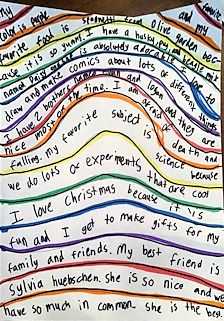 My and my
color is purple
favorite food is spaghetti from Olive garden bec-
cause it is so yum! I have a husky and
named Daisy is absolutely adorable I love
draw and make comics about lots of different things
I have 2 brothers named and Logan and they are
nice most of the time. I am afraid of
falling. my favorite subject is death and
science because
we do lots of experiments that are cool
I love Christmas because it is
fun and I get to make gifts for my
family and friends. My best friend is
Sylvia huebschen. she is so nice and we
have so much in common. she is the best.